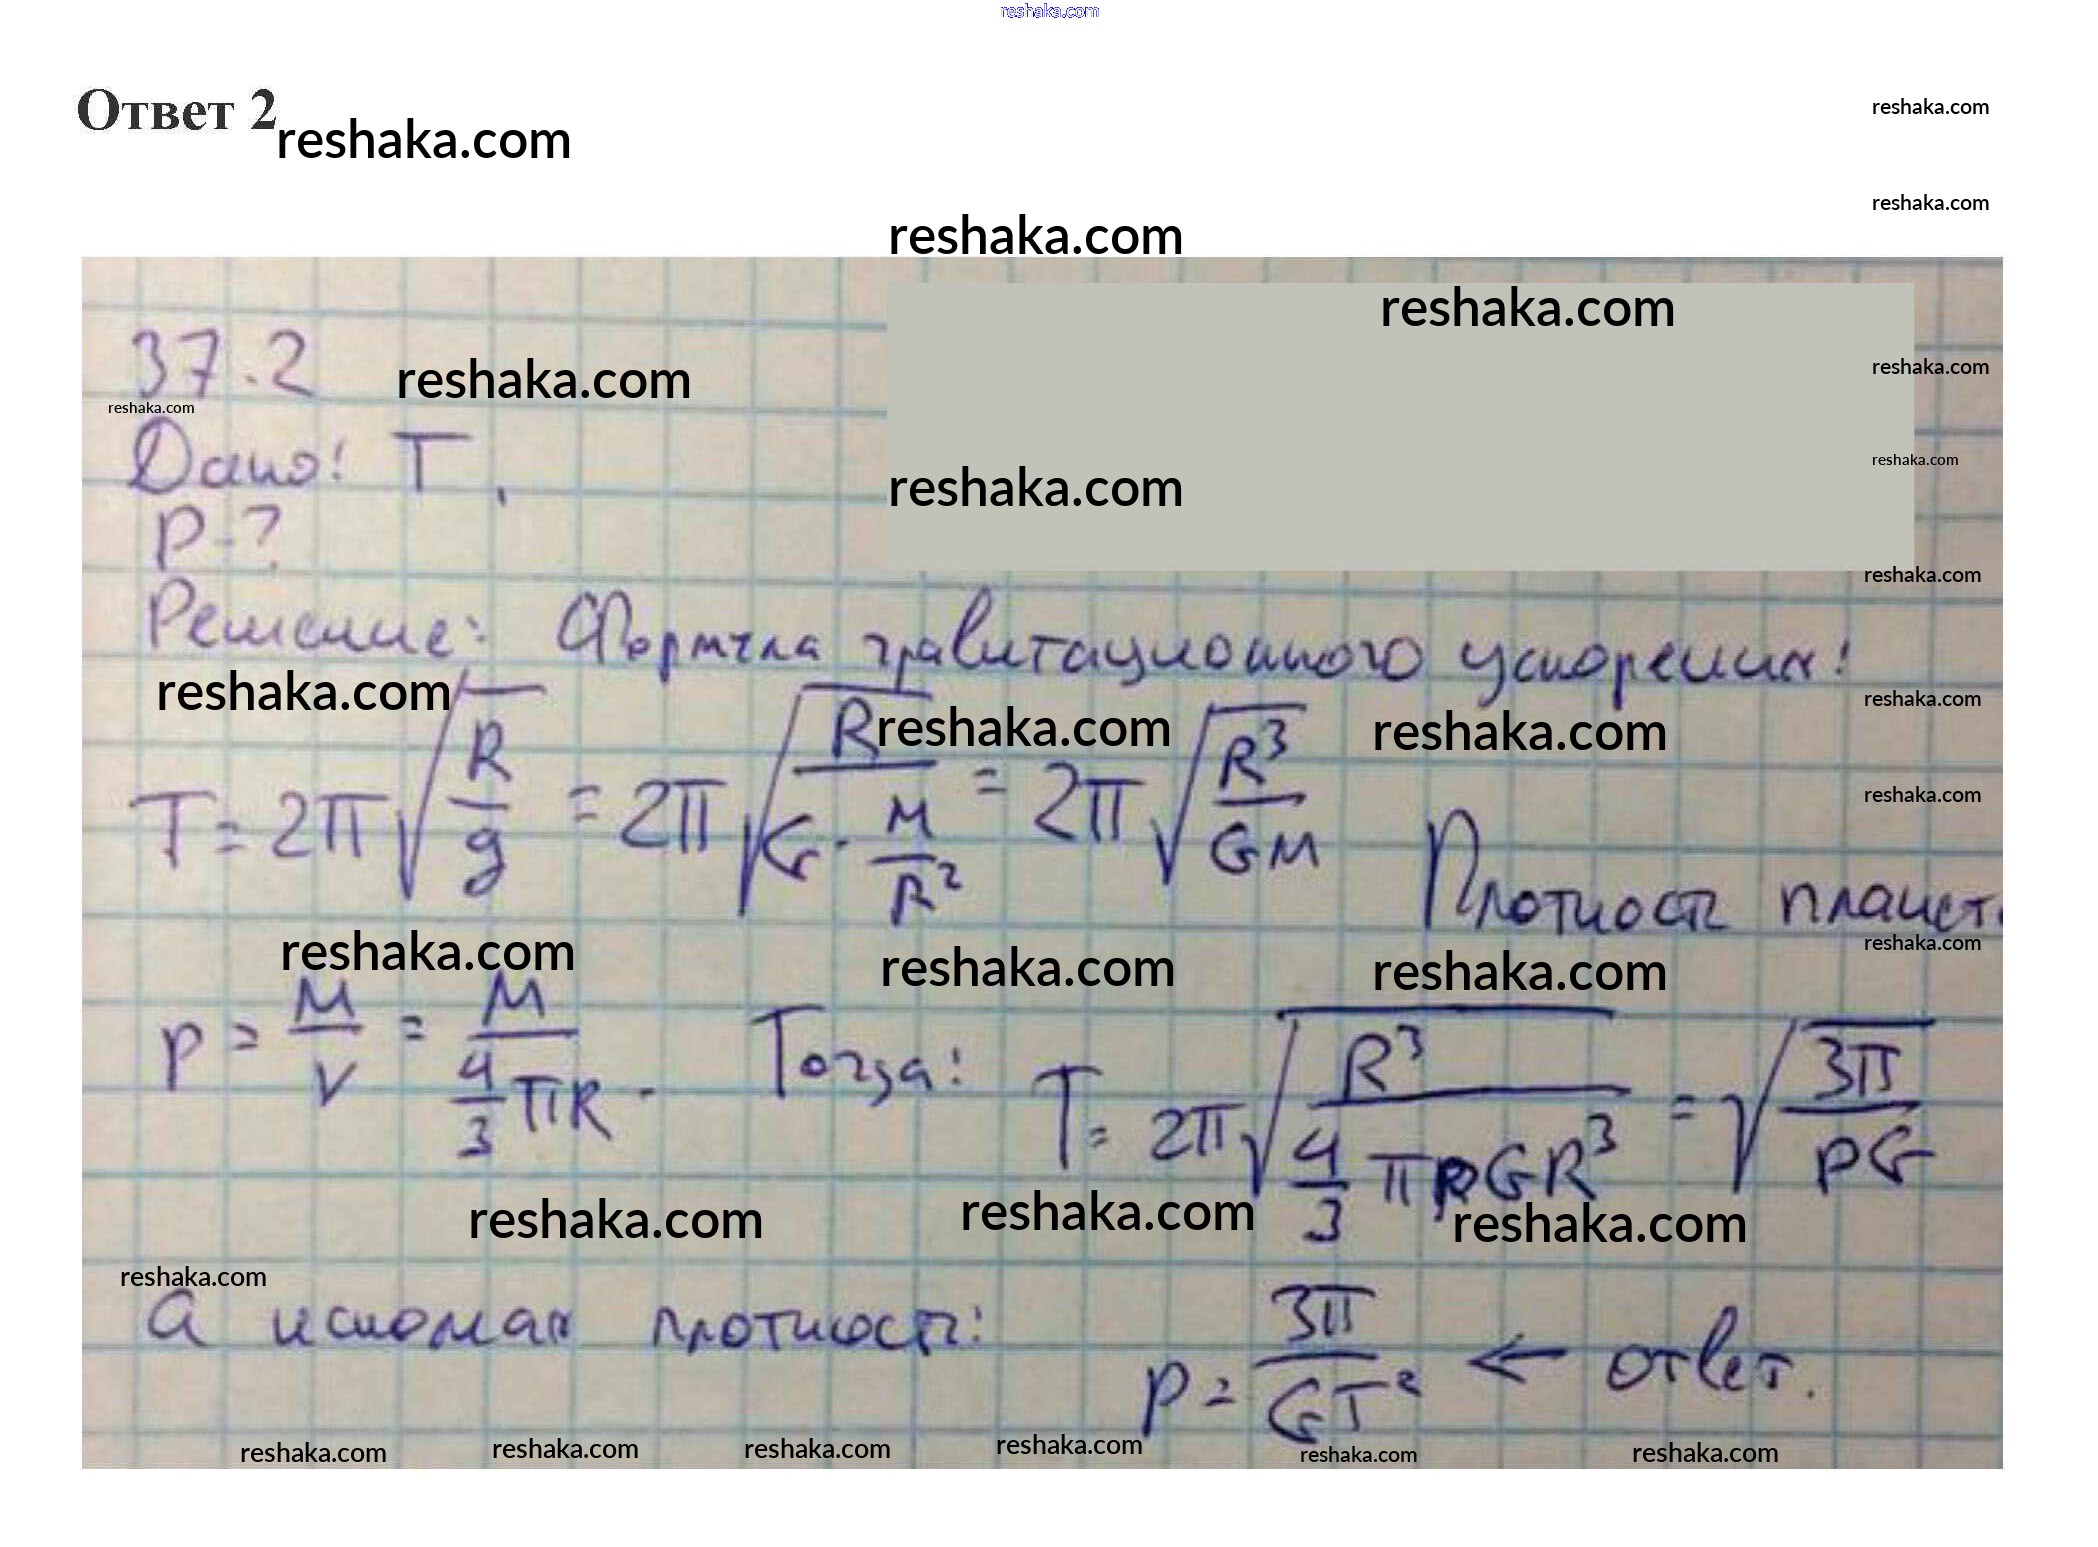 reshaka.com
Ответ 2
reshaka.com
reshaka.com
reshaka.com
reshaka.com
reshaka.com
37.2
reshaka.com
reshaka.com
reshaka.com
Дано: T,
reshaka.com
reshaka.com
ρ-?
reshaka.com
Решение: Формула гравитационного ускорения:
reshaka.com
reshaka.com
reshaka.com
reshaka.com
T = 2π√(R/g) = 2π√(R/(G·M/R²)) = 2π√(R³/GM) Плотность планеты
reshaka.com
reshaka.com
reshaka.com
reshaka.com
reshaka.com
ρ = M/V = M/(4/3 πR. Тогда: T = 2π√(R³/(4/3 πρGR³)) = √(3π/ρG)
reshaka.com
reshaka.com
reshaka.com
reshaka.com
А искомая плотность: ρ = 3π/GT² ← ответ.
reshaka.com
reshaka.com
reshaka.com
reshaka.com
reshaka.com
reshaka.com